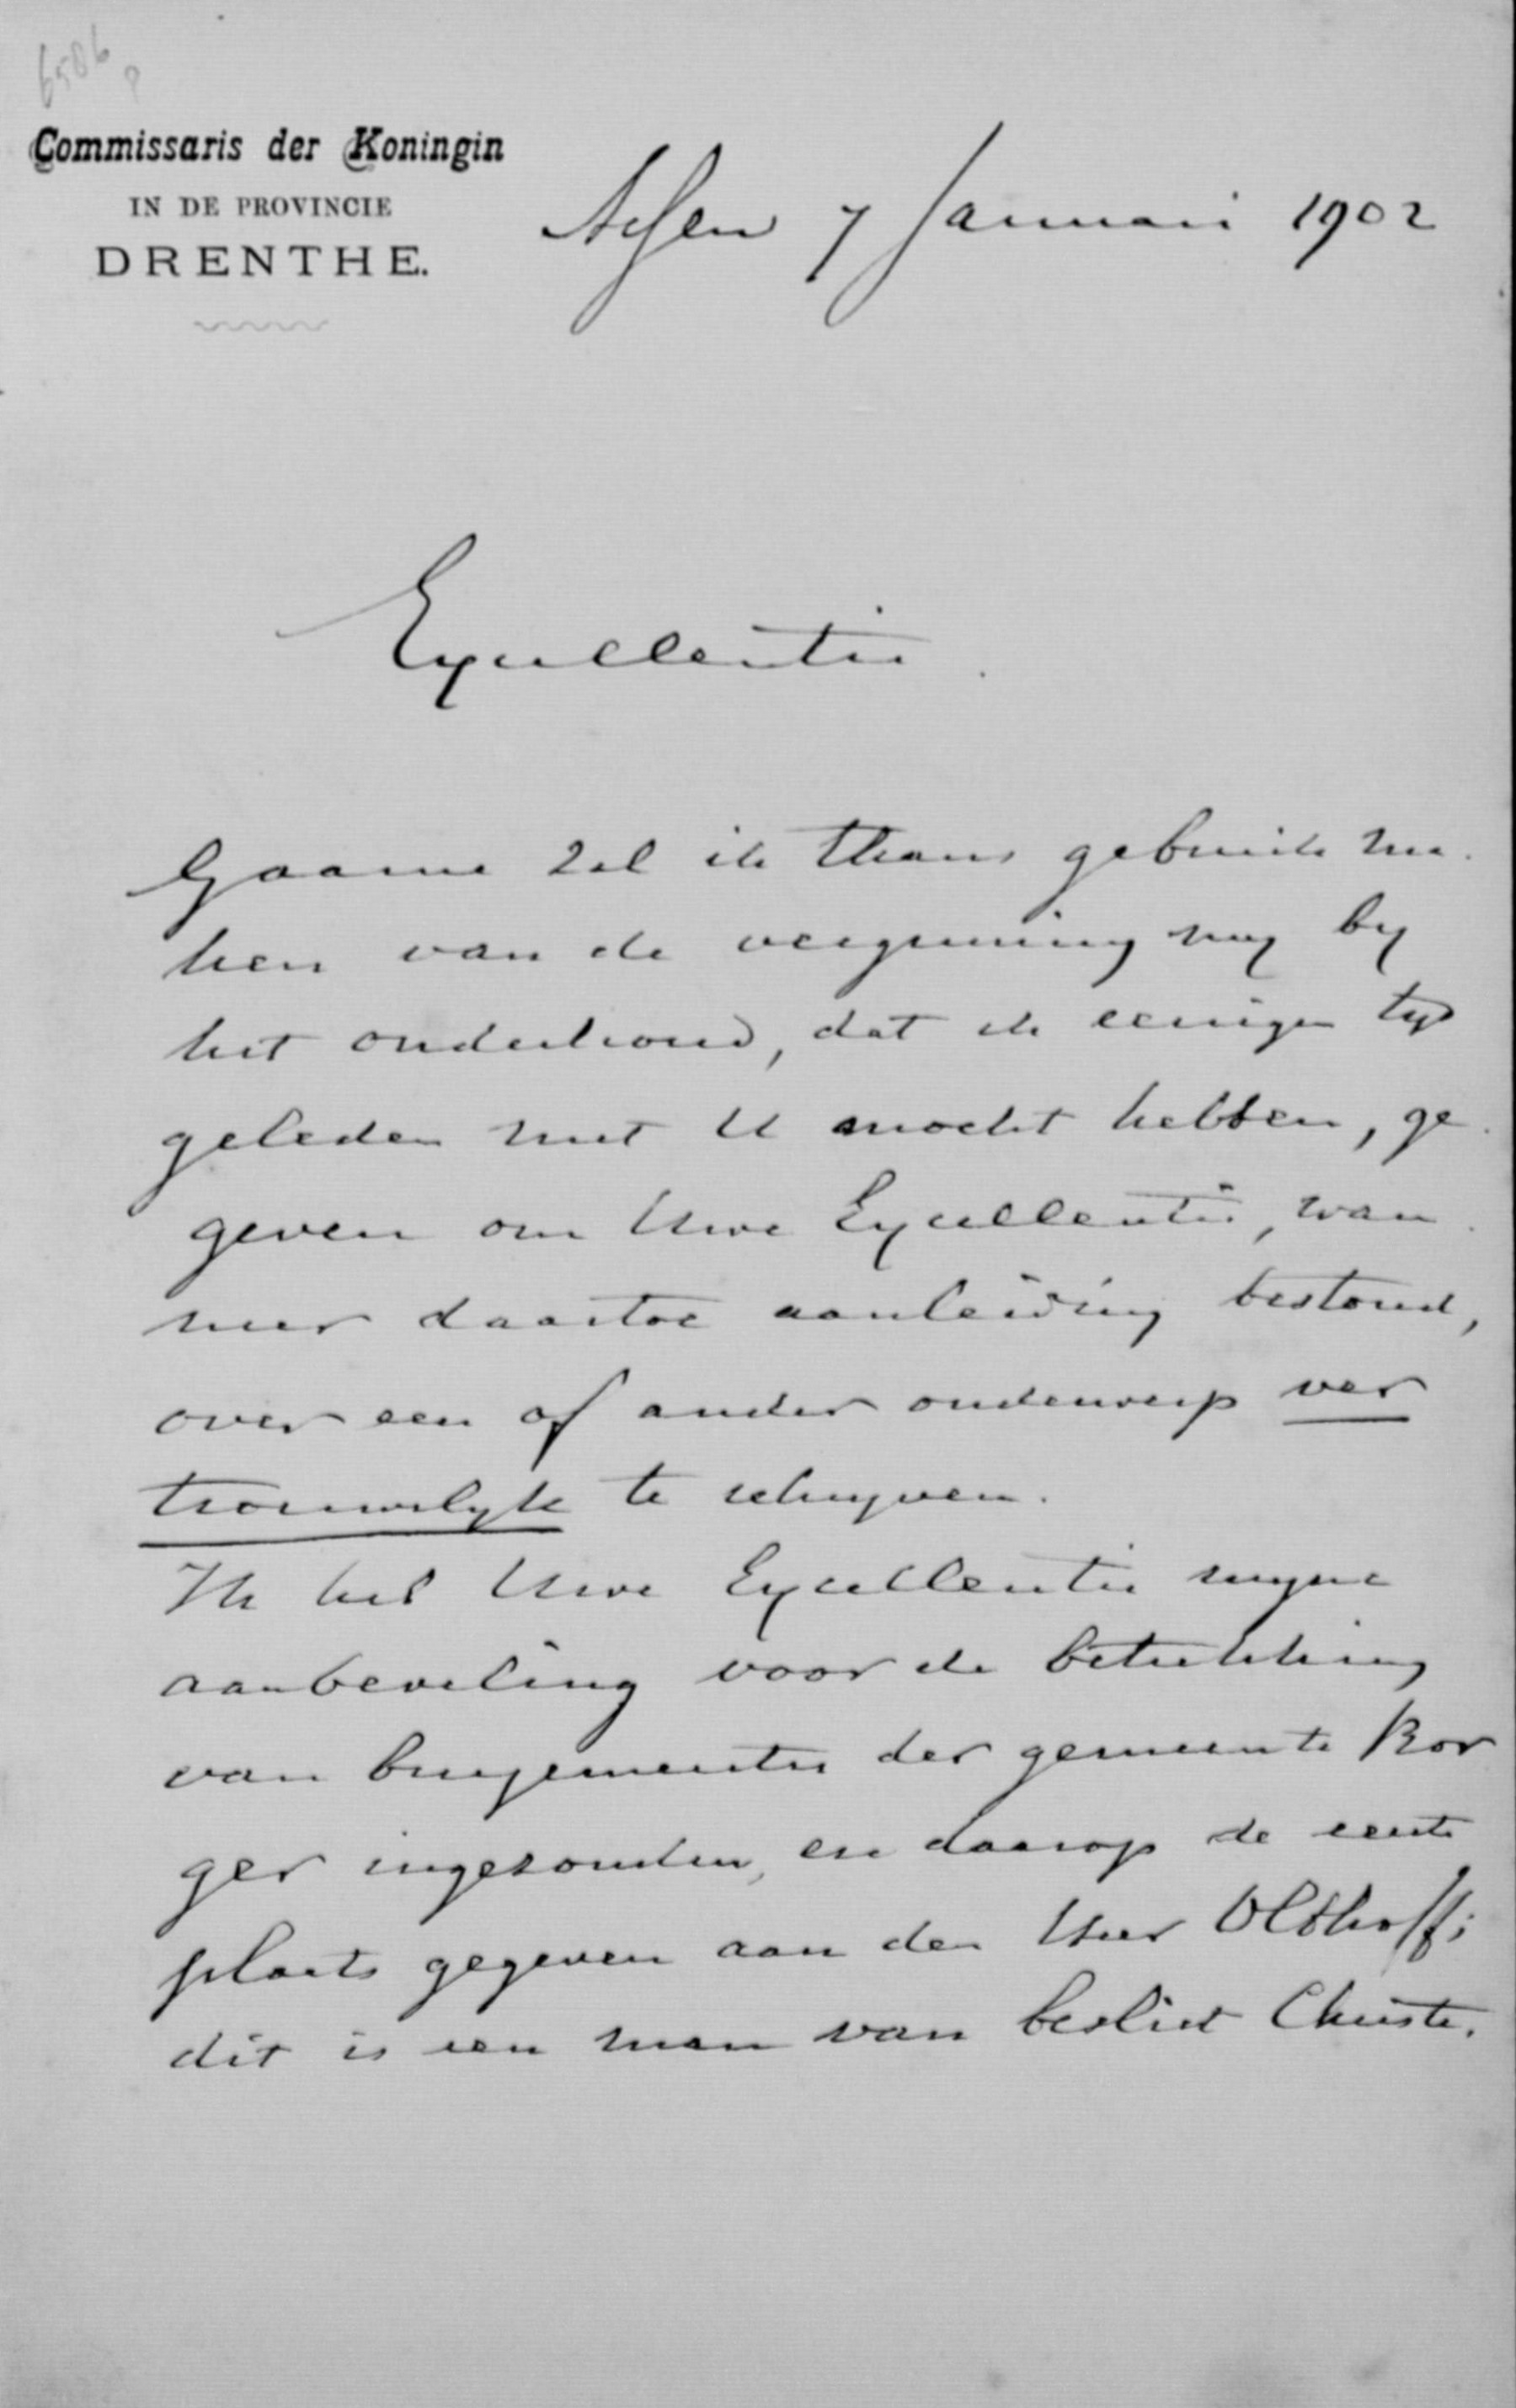 6586
Commissaris der Koningin
IN DE PROVINCIE
DRENTHE.
Assen 7 Januari 1902
Excellentie.
Gaarne zal ik thans gebruik ma-
ken van de vergunning mij bij
het onderhoud, dat ik eenigen tijd
geleden met U mocht hebben, ge-
geven om Uwe Excellentie, wan-
neer daartoe aanleiding bestond,
over een of ander onderwerp ver
trouwelijk te schrijven.
Ik heb Uwe Excellentie mijne
aanbeveling voor de betrekking
van burgemeester der gemeente Bor
ger ingezonden, en daarop de eerste
plaats gegeven aan den Heer Olthoff;
dit is een man van beslist Christe-